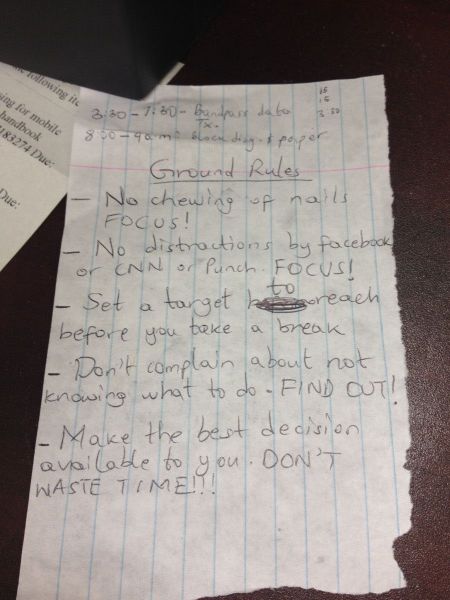 following ite
ing for mobile
handbook
183274 Due:
Due:
15
15
3:30 - 7:30 - Bandpass data
3 30
Tx.
block diag. & paper
Ground Rules
- No chewing of nails
FOCUS!
- No distractions by facebook
or CNN or Punch. FOCUS!
to
- Set a target reach
before you take a break
- Don't complain about not
knowing what to do - FIND OUT!
- Make the best decision
available to you. DON'T
WASTE TIME!!!